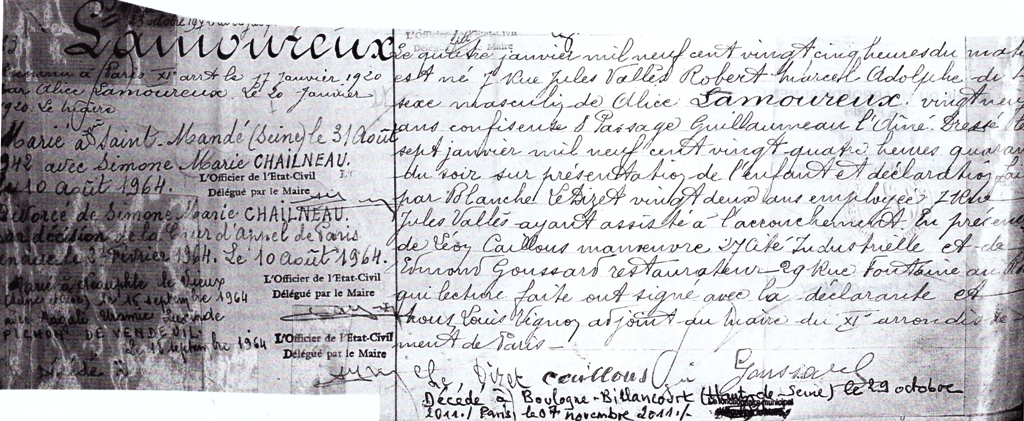 23 octobre
Lamoureux
Reconnu à Paris XIe arrt le 17 janvier 1920
par Alice Lamoureux. Le 20 Janvier
1920. Le Maire
Marié à Saint-Mandé (Seine) le 31 Août
1942 avec Simone Marie CHAILNEAU.
Le 10 Août 1964.
L'Officier de l'Etat-Civil
Délégué par le Maire
Divorcé de Simone Marie CHAILNEAU.
par décision de la Cour d'Appel de Paris
le 3 Février 1964. Le 10 Août 1964.
L'Officier de l'Etat-Civil
Délégué par le Maire
Marié à le Vieux
le 15 septembre 1964
avec Magali
PICHON DE VENDEUIL
Le 18 septembre 1964
L'Officier de l'Etat-Civil
Délégué par le Maire
L'Officier de l'Etat-Civil
Délégué par le Maire
Le quatre janvier mil neuf cent vingt cinq heures du matin
est né 7 Rue Jules Vallès Robert Marcel Adolphe du
sexe masculin de Alice Lamoureux vingt neuf
ans confiseuse 8 Passage Guillaumeau l'Aîné. Dressé le
sept janvier mil neuf cent vingt quatre heures quarante
du soir sur présentation de l'enfant et déclaration
par Blanche Le Dizet vingt deux ans employée 7 Rue
Jules Vallès ayant assisté à l'accouchement. En présence
de Léon Caillous manœuvre 37 Cité Industrielle et de
Edmond Goussard restaurateur 29 Rue Fontaine au Roi
qui lecture faite ont signé avec la déclarante et
Nous Louis Vignon adjoint au Maire du XIe arrondisse
ment de Paris -
Le Dizet Caillous Goussard
Décédé à Boulogne-Billancourt (Hauts-de-Seine) le 29 octobre
2011./ Paris, le 07 novembre 2011./.